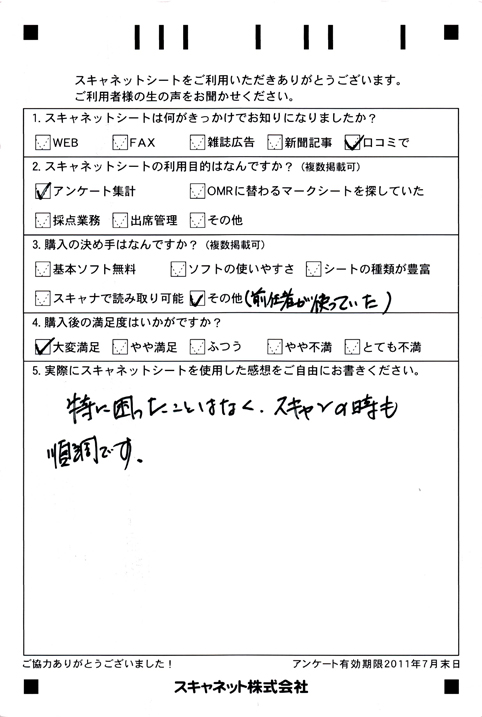 スキャネットシートをご利用いただきありがとうございます。
ご利用者様の生の声をお聞かせください。
1. スキャネットシートは何がきっかけでお知りになりましたか？
WEB FAX 雑誌広告 新聞記事 口コミで
2. スキャネットシートの利用目的はなんですか？（複数掲載可）
アンケート集計 OMRに替わるマークシートを探していた
採点業務 出席管理 その他
3. 購入の決め手はなんですか？（複数掲載可）
基本ソフト無料 ソフトの使いやすさ シートの種類が豊富
スキャナで読み取り可能 その他(前任者が使っていた)
4. 購入後の満足度はいかがですか？
大変満足 やや満足 ふつう やや不満 とても不満
5. 実際にスキャネットシートを使用した感想をご自由にお書きください。
特に困ったことはなく、スキャンの時も
順調です。
ご協力ありがとうございました！ アンケート有効期限2011年7月末日
スキャネット株式会社